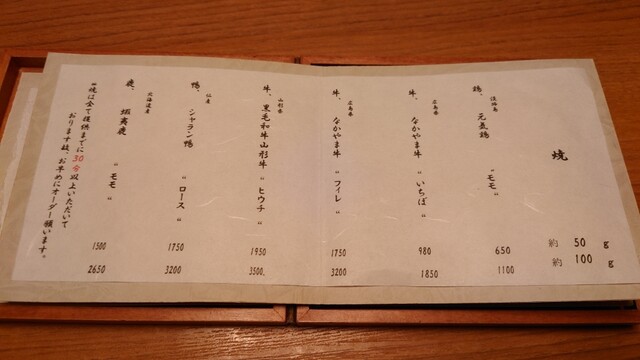 焼
約 50 g
約 100 g
淡路島
鶏、 元気鶏 "モモ"
650
1100
広島県
牛、 なかやま牛 "いちぼ"
980
1850
広島県
牛、 なかやま牛 "フィレ"
1750
3200
山形県
牛、 黒毛和牛山形牛 "ヒウチ"
1950
3500.
仏産
鴨、 シャラン鴨 "ロース"
1750
3200
北海道産
鹿、 蝦夷鹿 "モモ"
1500
2650
※焼は全て提供までに30分以上いただいて
おります故、お早めにオーダー願います。